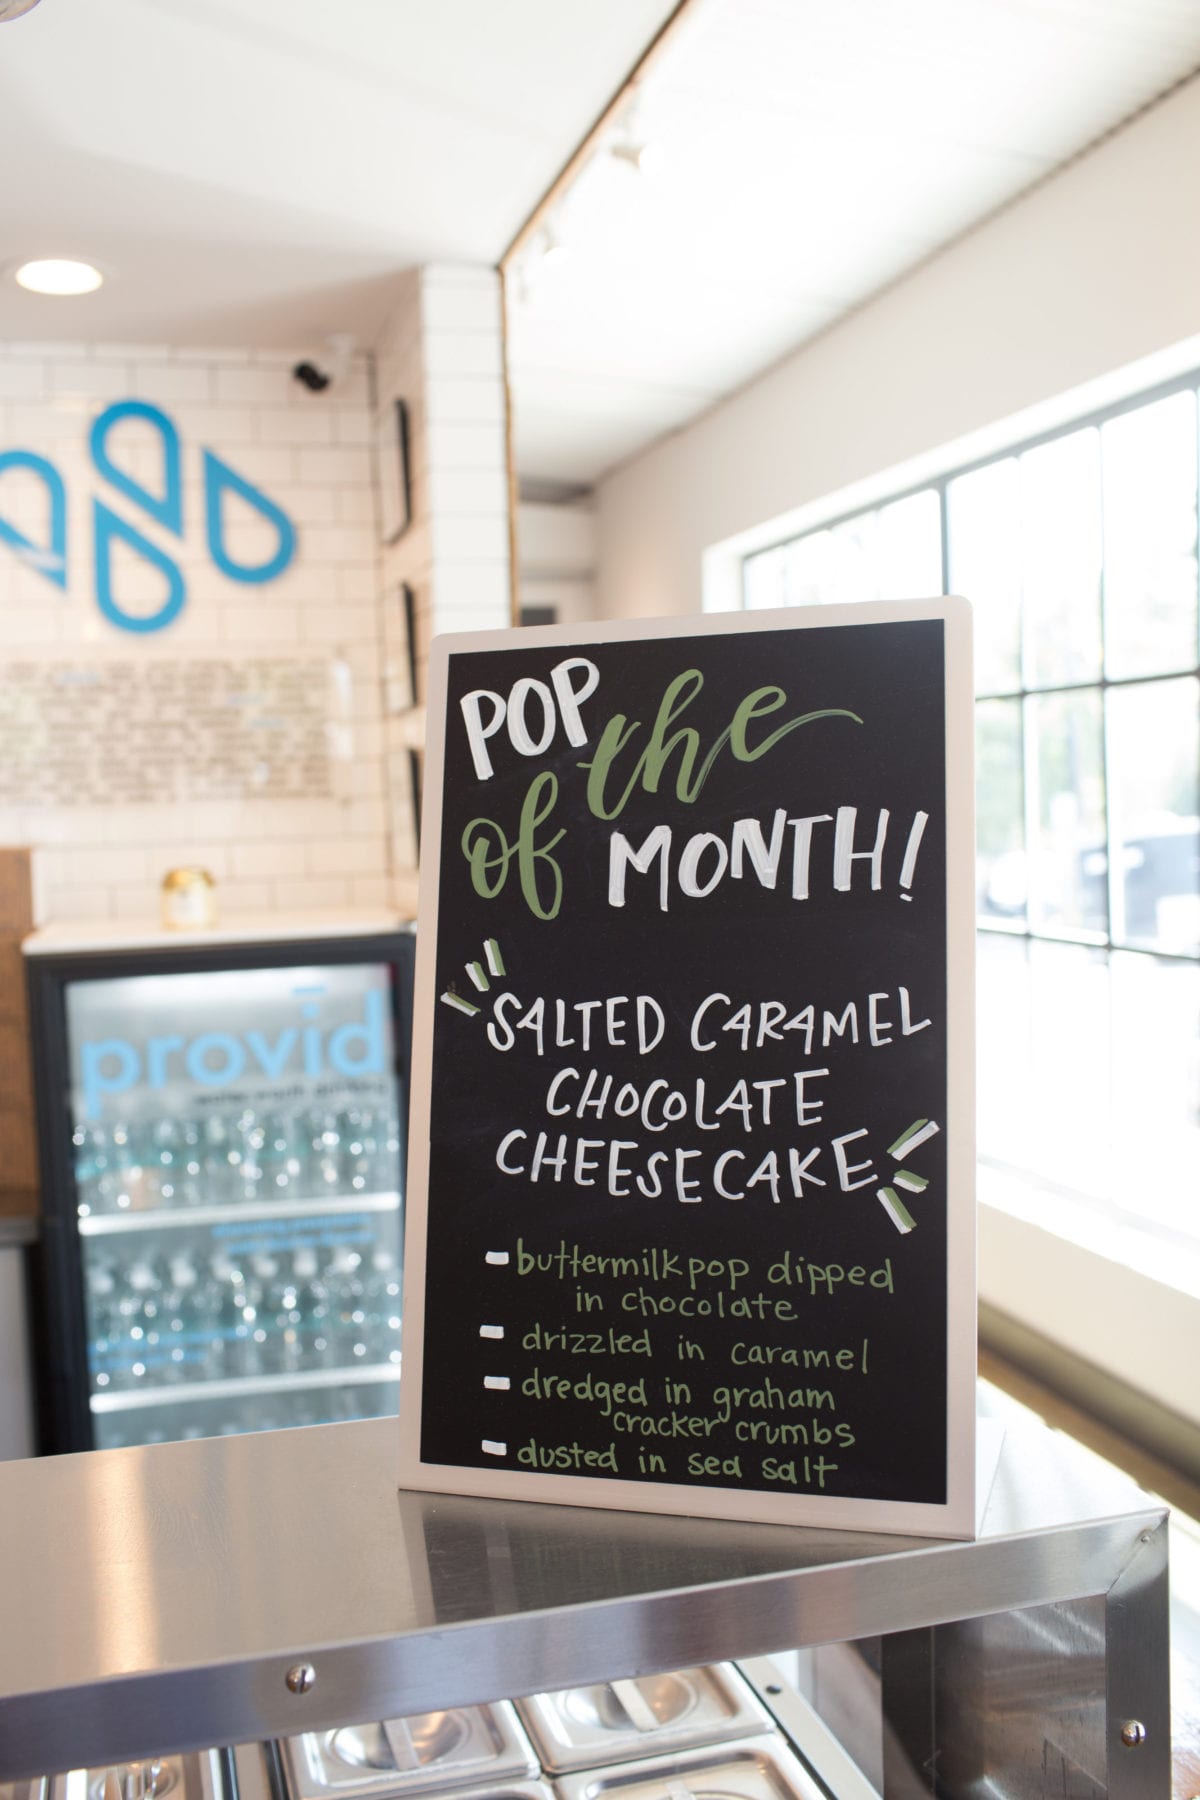 POP
of the
MONTH!
SALTED CARAMEL
CHOCOLATE
CHEESECAKE
buttermilk pop dipped
in chocolate
drizzled in caramel
dredged in graham
cracker crumbs
dusted in sea salt
provid